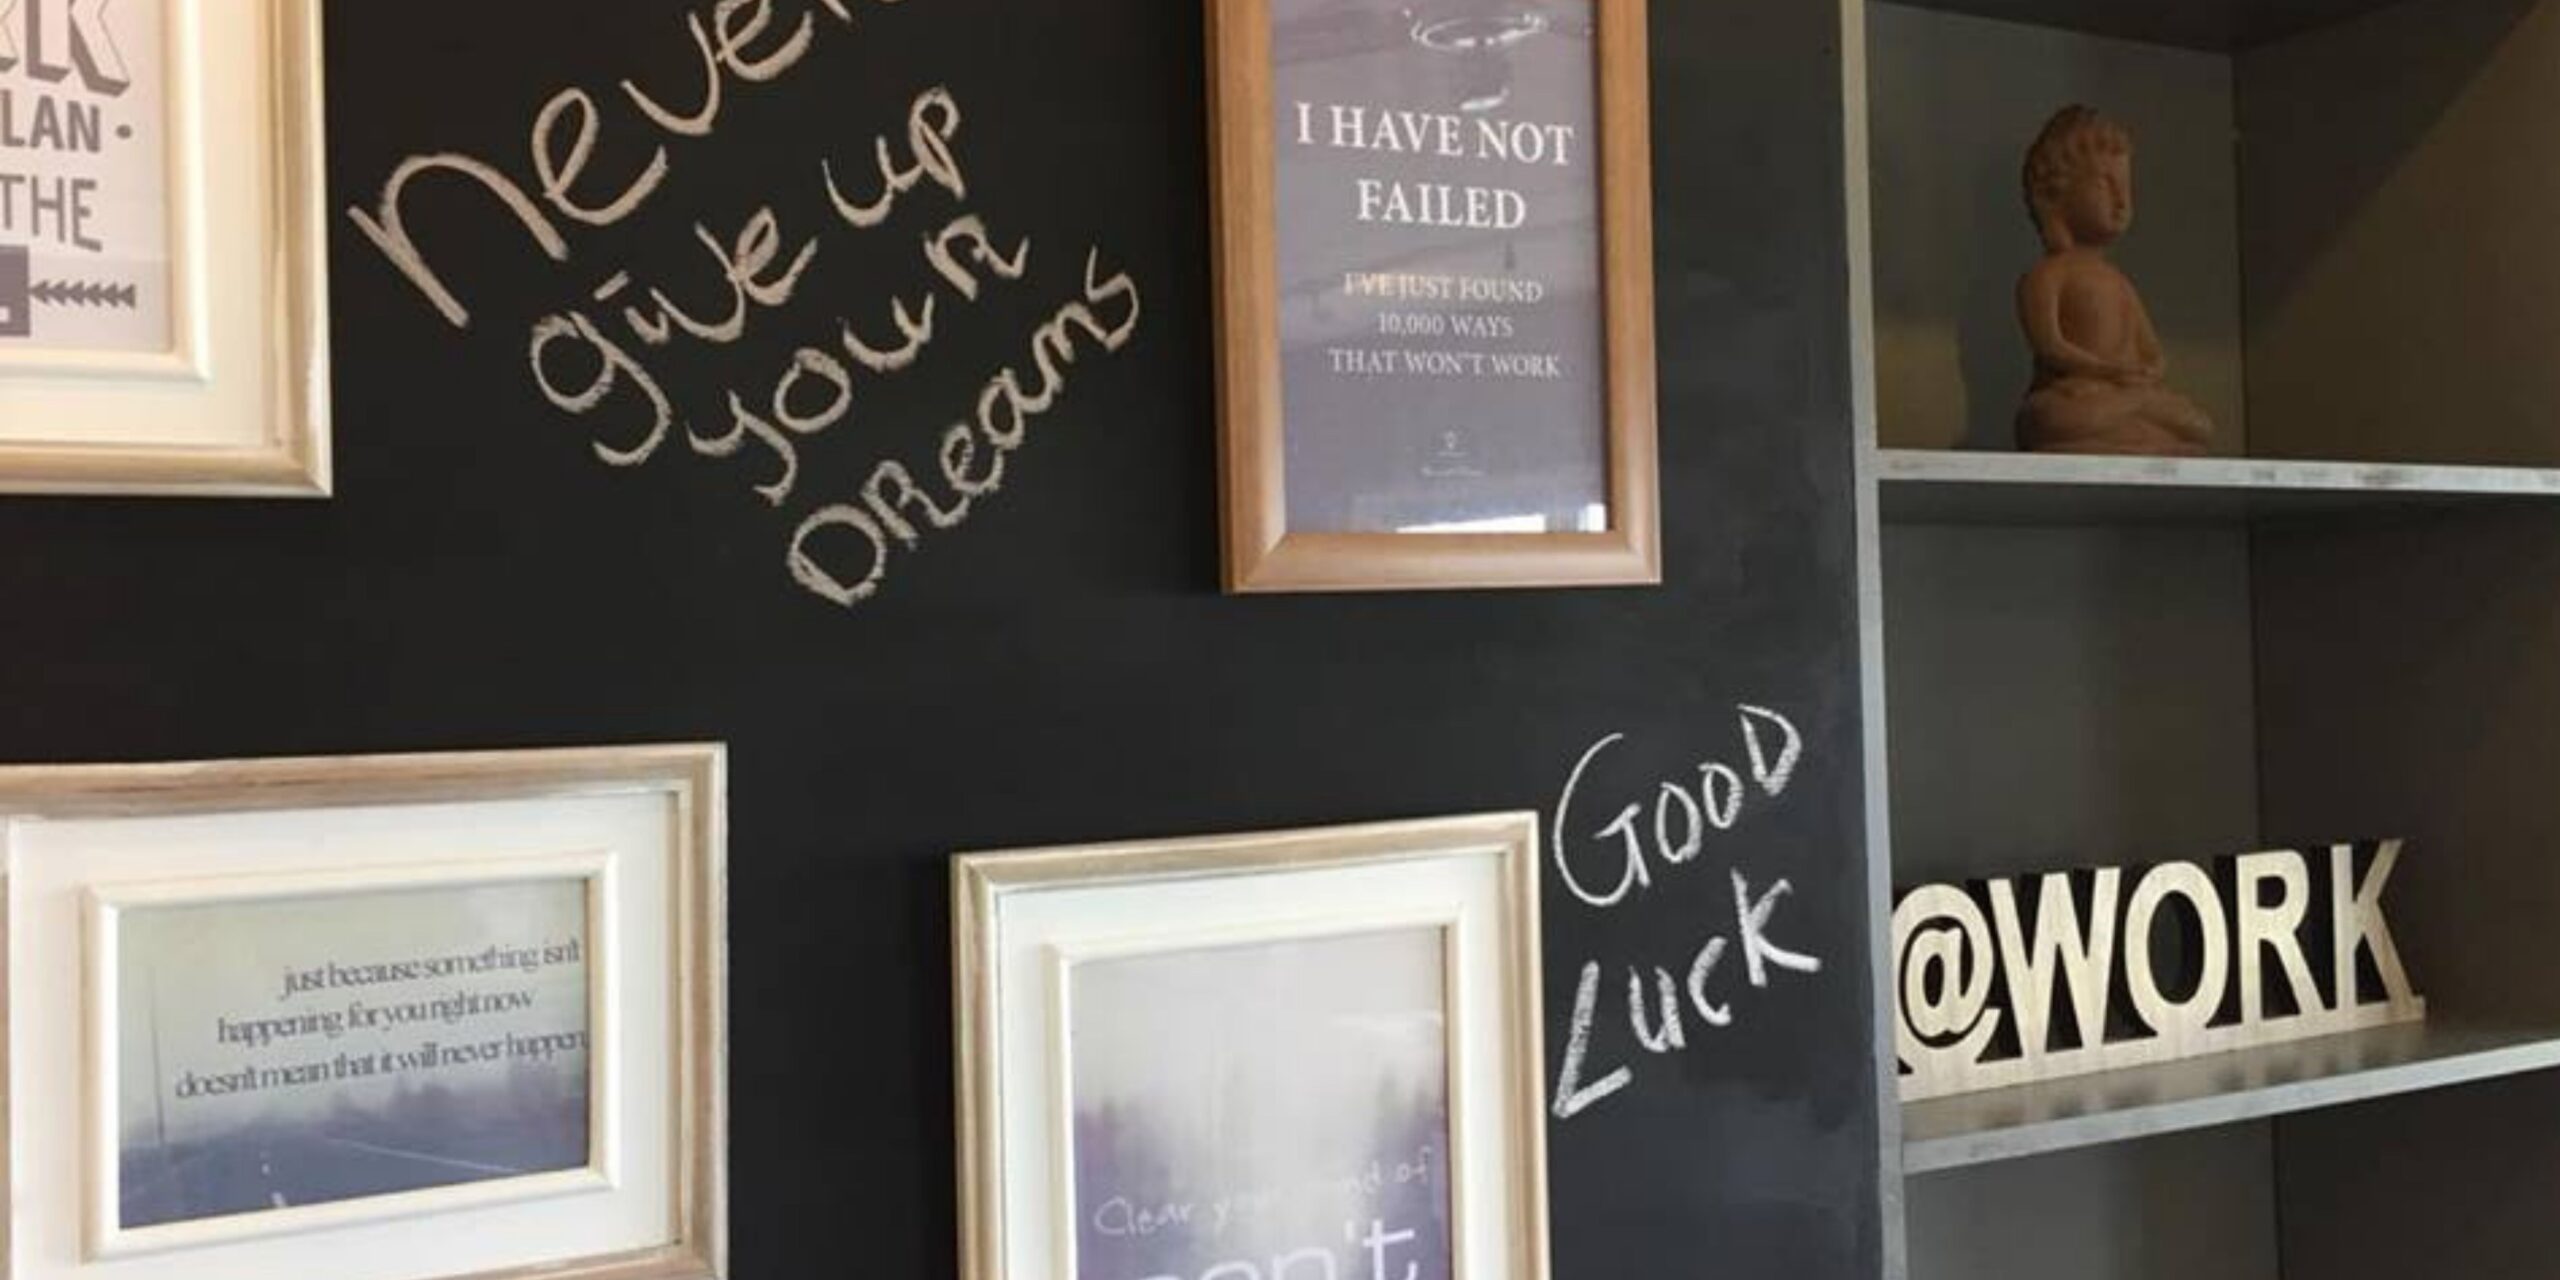 LAN •
THE
never
give up
your
Dreams
I HAVE NOT
FAILED
I'VE JUST FOUND
10,000 WAYS
THAT WON'T WORK
just because something isn't
happening for you right now
doesn't mean that it will never happen.
Clear your mind of
GOOD
Luck
@WORK